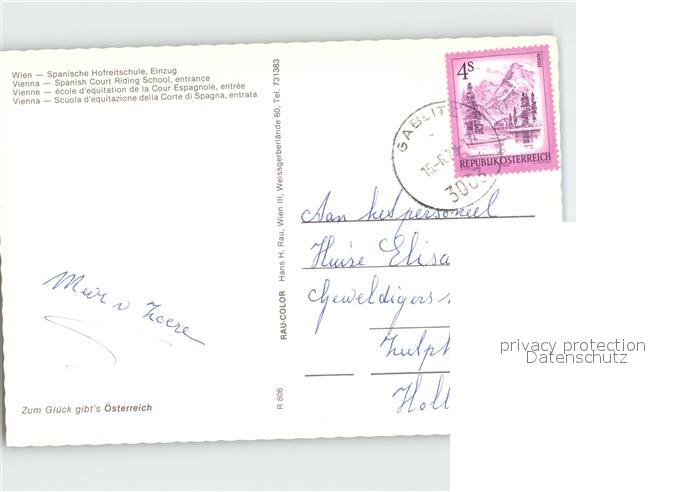 Wien — Spanische Hofreitschule, Einzug
Vienna — Spanish Court Riding School, entrance
Vienne — école d'equitation de la Cour Espagnole, entrée
Vienna — Scuola d'equitazione della Corte di Spagna, entrata
Zum Glück gibt's Österreich
R 806 RAU-COLOR Hans H. Rau, Wien III, Weissgerberlände 60, Tel. 731383
4S
REPUBLIK ÖSTERREICH
GABLITZ
3003
Aan het personeel
Huize Elisa
Geweldigers
Zutph
Holl
privacy protection
Datenschutz